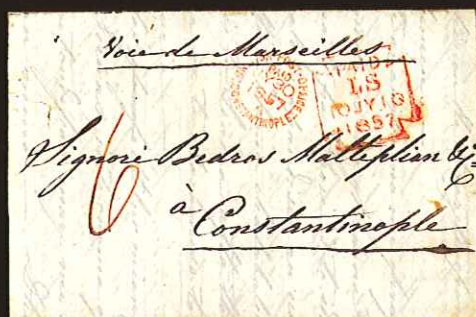 Voie de Marseilles
PAID
LS
10 JY 10
1857
CONSTANTINOPLE
6
Signori Bedros Malteplian &
à
Constantinople